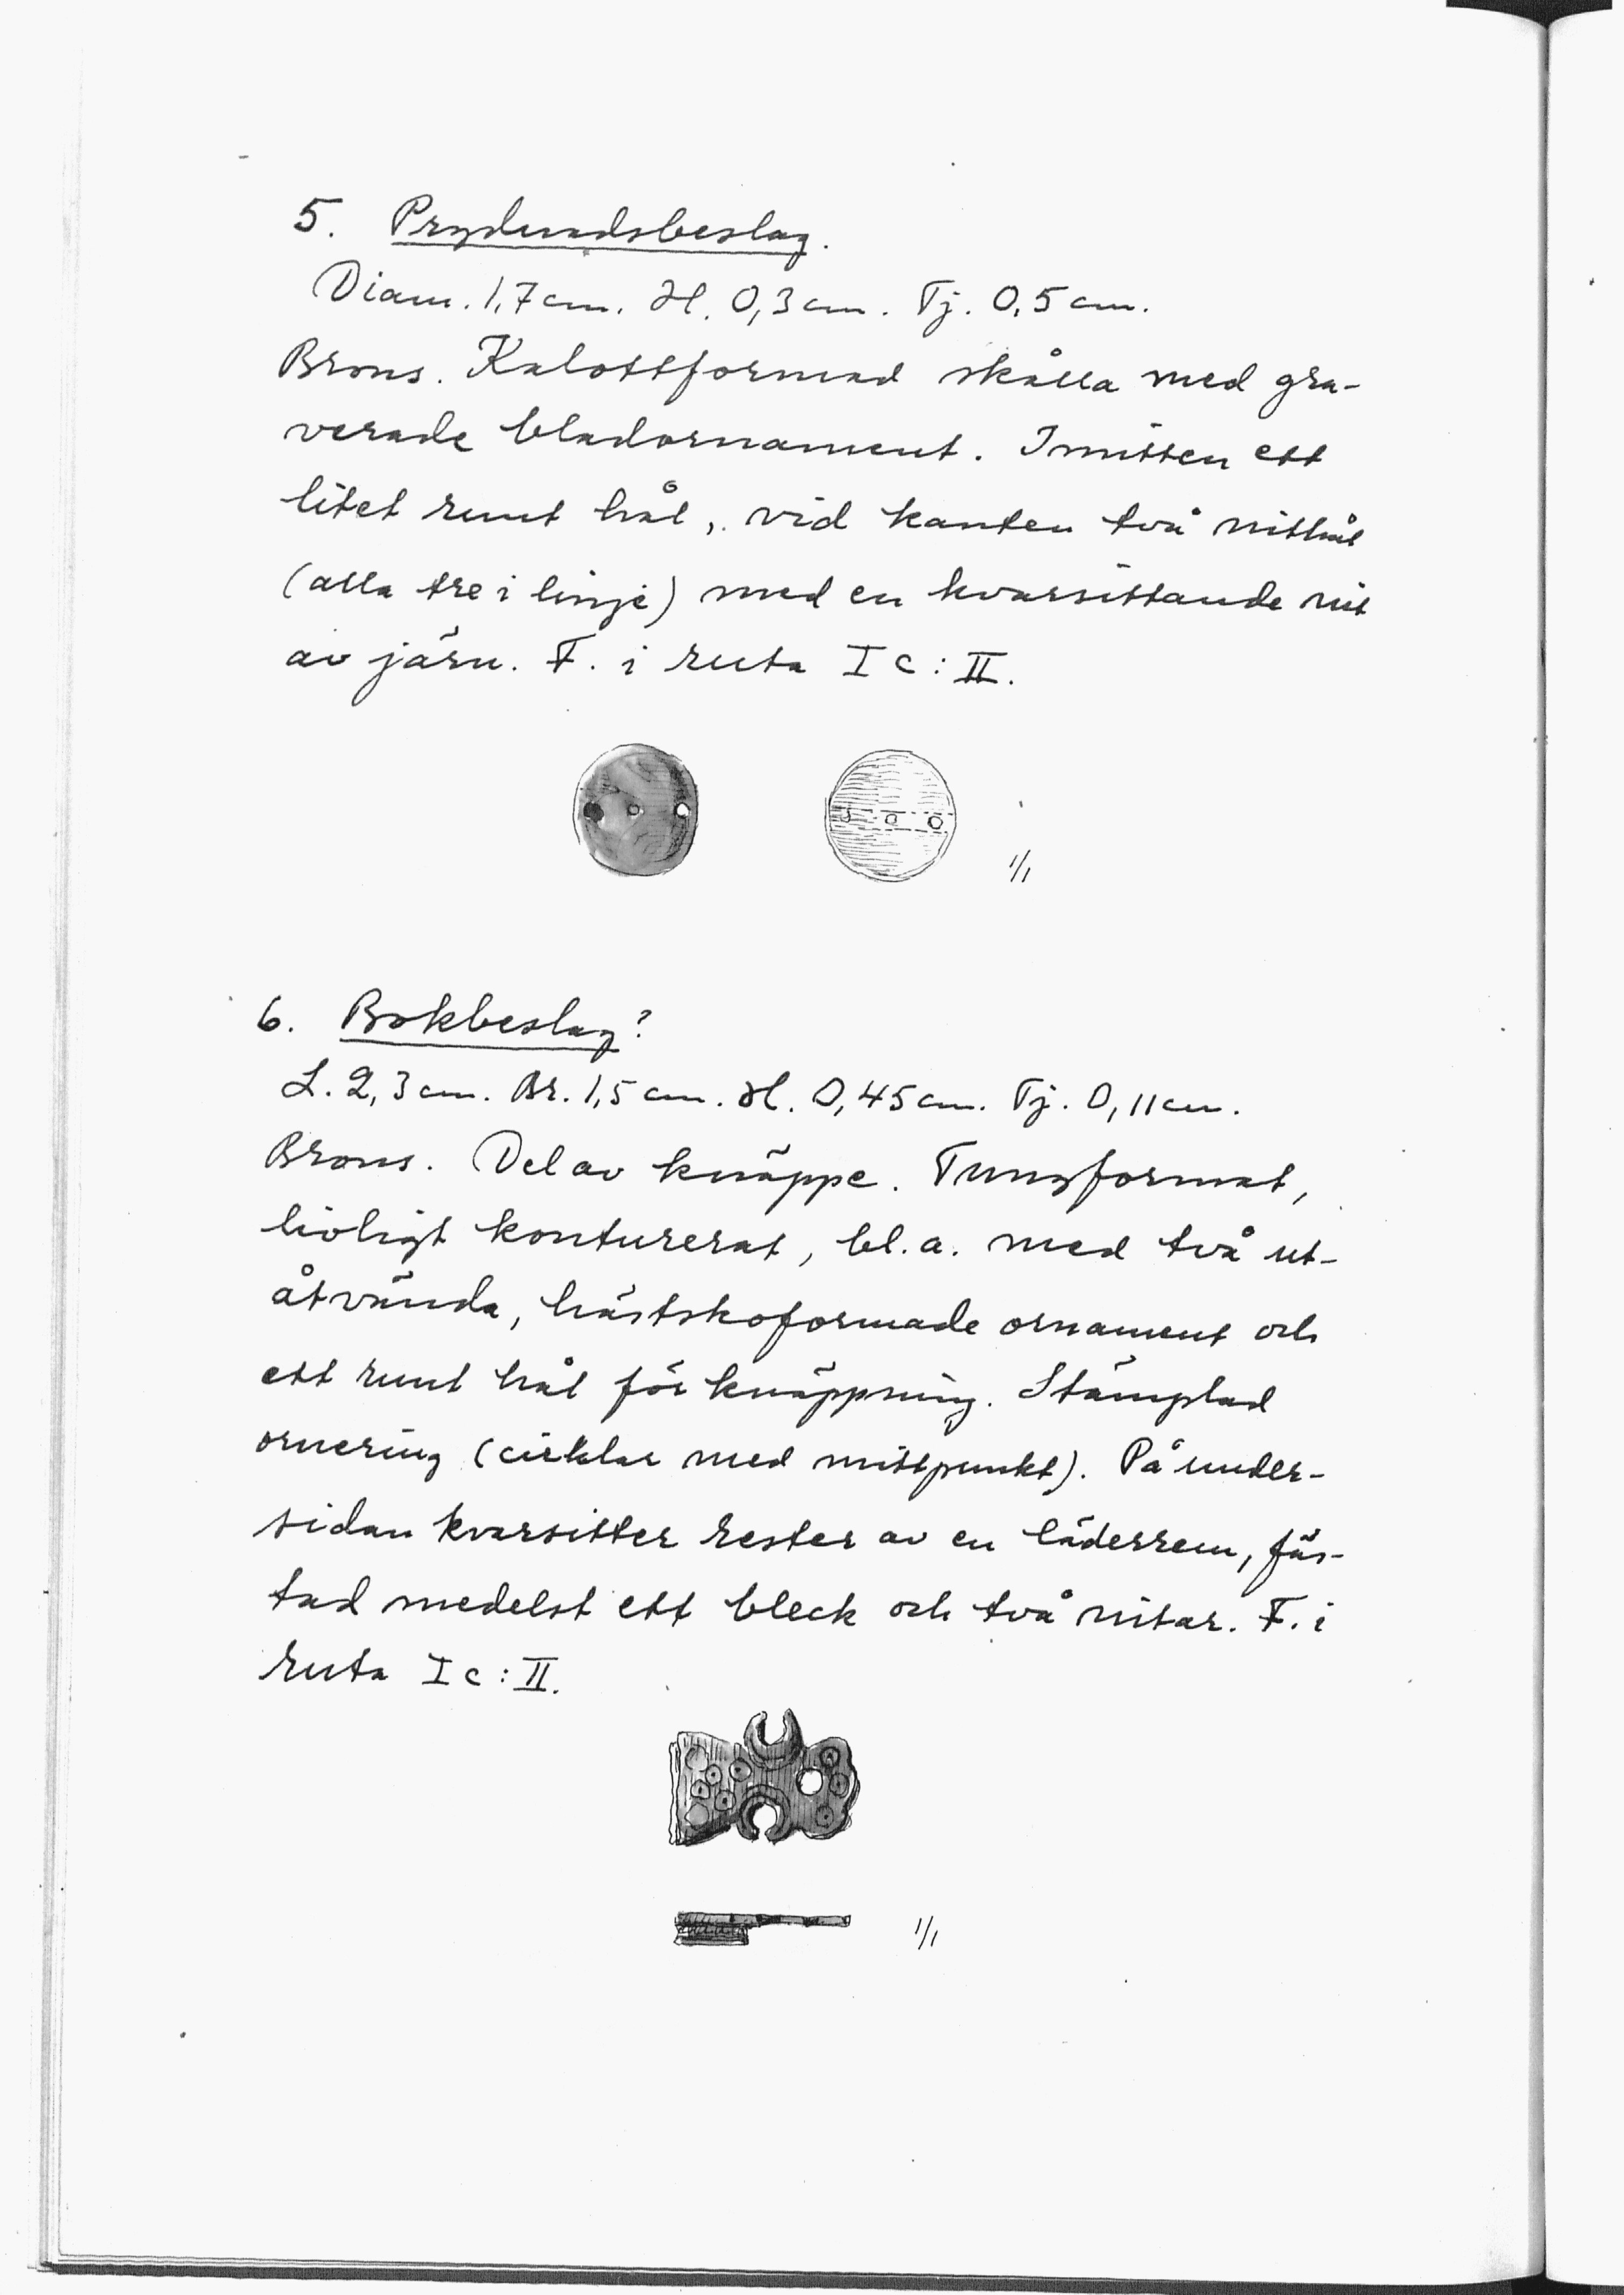 5. Prydnadsbeslag.
Diam. 1,7 cm. H. 0,3 cm. Tj. 0,5 cm.
Brons. Kalottformad skålla med gra-
verade bladornament. I mitten ett
litet runt hål, vid kanten två nithål
(alla tre i linje) med en kvarsittande nit
av järn. F. i ruta I c : II.
1/1
6. Bokbeslag?
L. 2,3 cm. Br. 1,5 cm. H. 0,45 cm. Tj. 0,11 cm.
Brons. Del av knäppe. Tungformat,
livligt konturerat, bl.a. med två ut-
åtvända, hästskoformade ornament och
ett runt hål för knäppning. Stämplad
ornering (cirklar med mittpunkt). På under-
sidan kvarsitter rester av en läderrem, fäs-
tad medelst ett bleck och två nitar. F. i
ruta I c : II.
1/1